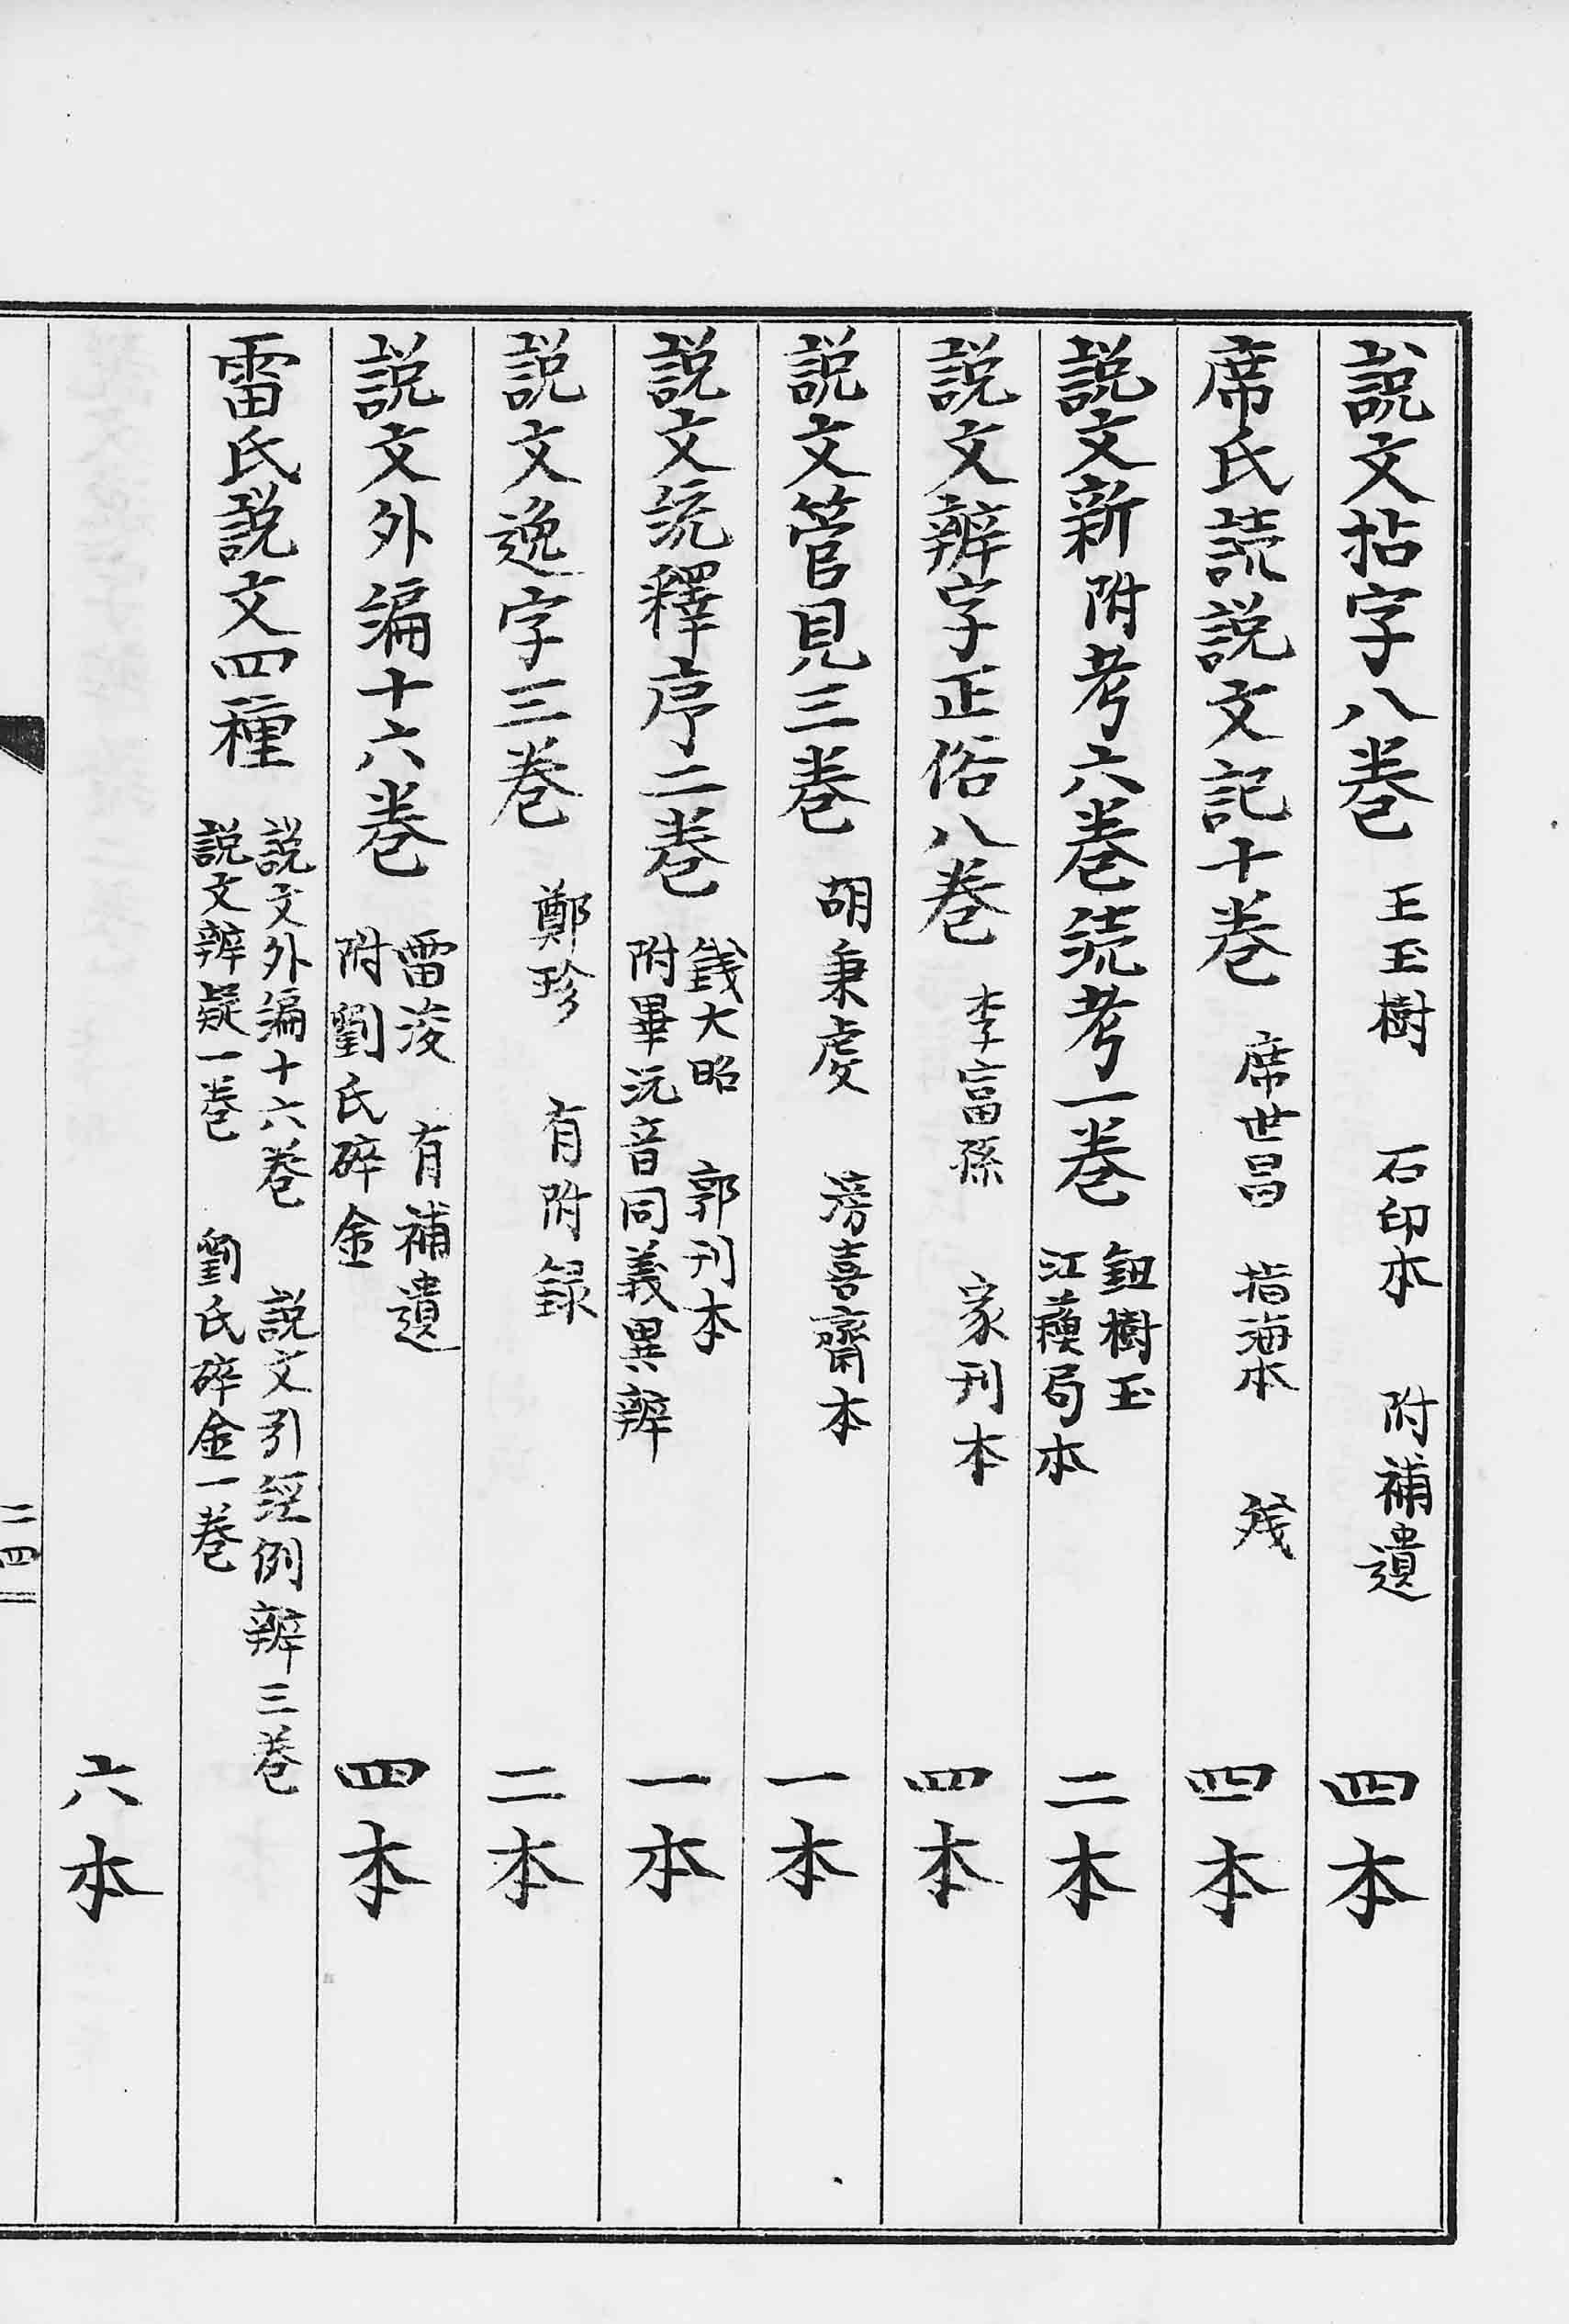 説文拈字八卷　王玉樹　石印本　附補遺　四本
席氏読説文記十卷　席世昌　指海本　残　四本
説文新附考六卷続考一卷　鈕樹玉　江蘇局本　二本
説文辨字正俗八卷　李富孫　家刊本　四本
説文管見三卷　胡秉虔　滂喜齋本　一本
説文统釋序二卷　錢大昭　郭刊本　附畢沅音同義異辨　一本
説文逸字三卷　鄭珍　有附録　二本
説文外編十六卷　雷浚　有補遺　附劉氏碎金　四本
雷氏説文四種　説文外編十六卷　説文引経例辨三卷　説文辨疑一卷　劉氏碎金一卷
六本
二四